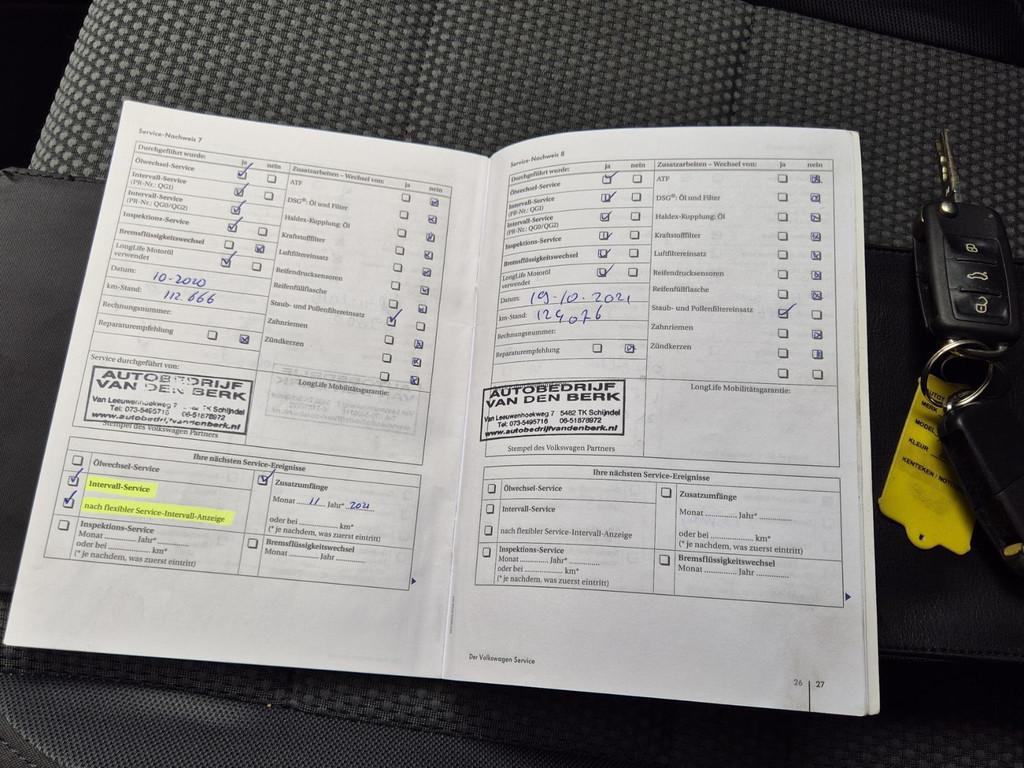 Service-Nachweis 7
Durchgeführt wurde: ja nein Zusatzarbeiten – Wechsel von: ja nein
Ölwechsel-Service
Intervall-Service
(PR-Nr.: QG1)
Intervall-Service
(PR-Nr.: QG0/QG2)
Inspektions-Service
Bremsflüssigkeitswechsel
LongLife Motoröl
verwendet
Datum: 10-2020
km-Stand: 112 666
Rechnungsnummer:
Reparaturempfehlung
Service durchgeführt von:
ATF
DSG®: Öl und Filter
Haldex-Kupplung: Öl
Kraftstofffilter
Luftfiltereinsatz
Reifendrucksensoren
Reifenfüllflasche
Staub- und Pollenfiltereinsatz
Zahnriemen
Zündkerzen
LongLife Mobilitätsgarantie:
AUTOBEDRIJF
VAN DEN BERK
Van Leeuwenhoekweg 7 TK Schijndel
Tel: 073-5495716 06-51878972
www.autobedrijfvandenberk.nl
Stempel des Volkswagen Partners
Ihre nächsten Service-Ereignisse
Ölwechsel-Service
Intervall-Service
nach flexibler Service-Intervall-Anzeige
Inspektions-Service
Monat Jahr*
oder bei km*
(* je nachdem, was zuerst eintritt)
Zusatzumfänge
Monat 11 Jahr* 2021
oder bei km*
(* je nachdem, was zuerst eintritt)
Bremsflüssigkeitswechsel
Monat Jahr
Service-Nachweis 8
Durchgeführt wurde: ja nein Zusatzarbeiten – Wechsel von: ja nein
Ölwechsel-Service
Intervall-Service
(PR-Nr.: QG1)
Intervall-Service
(PR-Nr.: QG0/QG2)
Inspektions-Service
Bremsflüssigkeitswechsel
LongLife Motoröl
verwendet
Datum: 19-10-2021
km-Stand: 124076
Rechnungsnummer:
Reparaturempfehlung
ATF
DSG®: Öl und Filter
Haldex-Kupplung: Öl
Kraftstofffilter
Luftfiltereinsatz
Reifendrucksensoren
Reifenfüllflasche
Staub- und Pollenfiltereinsatz
Zahnriemen
Zündkerzen
LongLife Mobilitätsgarantie:
AUTOBEDRIJF
VAN DEN BERK
Van Leeuwenhoekweg 7 5482 TK Schijndel
Tel: 073-5495716 06-51878972
www.autobedrijfvandenberk.nl
Stempel des Volkswagen Partners
Ihre nächsten Service-Ereignisse
Ölwechsel-Service
Intervall-Service
nach flexibler Service-Intervall-Anzeige
Inspektions-Service
Monat Jahr*
oder bei km*
(* je nachdem, was zuerst eintritt)
Zusatzumfänge
Monat Jahr*
oder bei km*
(* je nachdem, was zuerst eintritt)
Bremsflüssigkeitswechsel
Monat Jahr
Der Volkswagen Service
26 27
MODEL
KLEUR
KENTEKEN